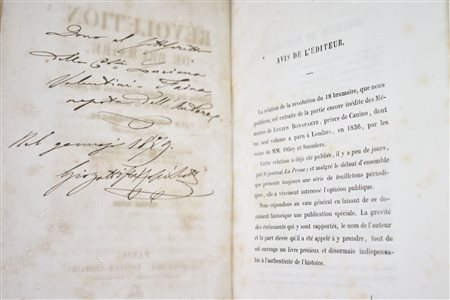 Dono al
della
Valentini
nipote dell'autore
Nel gennajo 1859.
AVIS DE L'ÉDITEUR.
La relation de la révolution du 18 brumaire, que nous
publions, est extraite de la partie encore inédite des Mé-
moires de LUCIEN BONAPARTE, prince de Canino, dont
un seul volume a paru à Londres, en 1836, par les
soins de MM. Otley et Saunders.
Cette relation a déjà été publiée, il y a peu de jours,
par le journal La Presse; et malgré le défaut d'ensemble
que présente toujours une série de feuilletons périodi-
ques, elle a vivement intéressé l'opinion publique.
Nous répondons au vœu général en faisant de ce do-
cument historique une publication spéciale. La gravité
des événements qui y sont rapportés, le nom de l'auteur
et la part élevée qu'il a été appelé à y prendre, font de
cet ouvrage un livre précieux et désormais indispensa-
ble à l'authenticité de l'histoire.